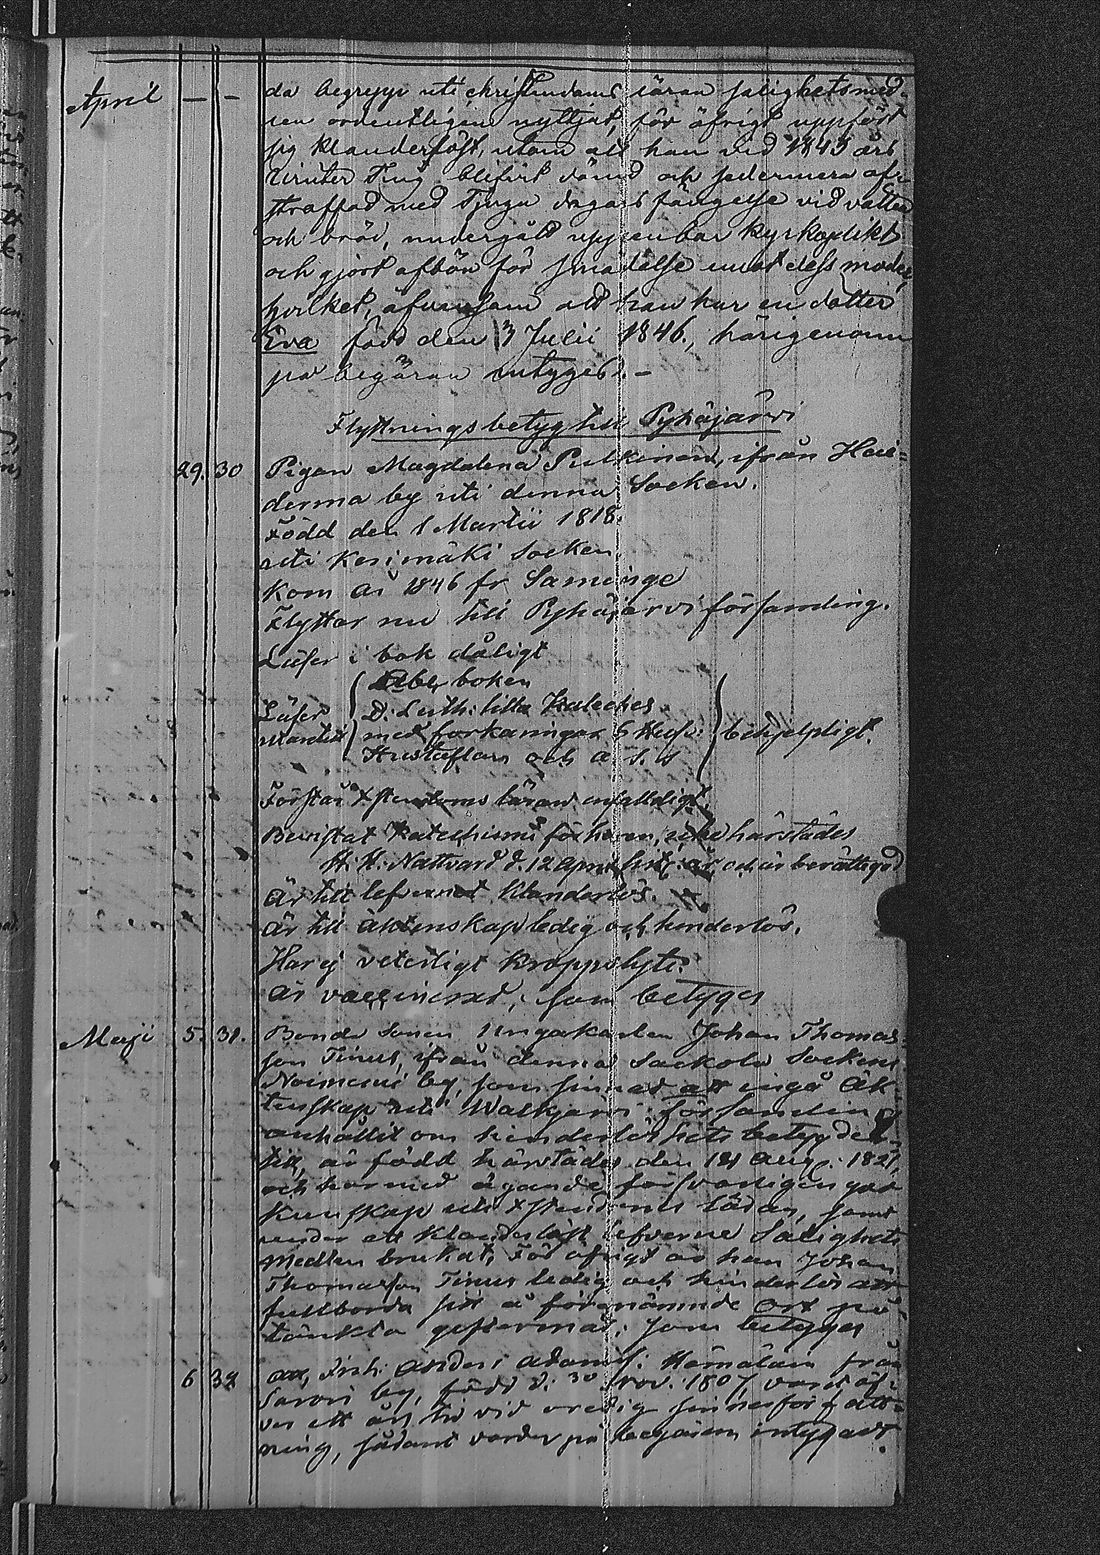 April — — da begrepp uti christendoms läran salighetsmed-
len ordentligen nyttjat, för äfrigt uppfört
sig klanderlöst, utom att han vid 1845 års
vinter Ting blifvit dömd och sedermera af-
straffad med Tjugu dagars fängelse vid vatten
och bröd, undergått uppenbar kyrkoplikt
och gjort afbön för smädelse emot dess moder,
hvilket, äfvensom att han har en dotter
Eva född den 13 Julii 1846, härigenom
på begäran intygas. —
Flyttningsbetyg till Pyhäjärvi
29. 30 Pigan Magdalena Pulkinen, ifrån
derma by uti denna Socken.
Född den 1 Martii 1818.
uti Kerimäki Socken.
Kom år 1846 fr Säminge
Flyttar nu till Pyhäjärvi församling.
Läser i bok dåligt
Abc boken
Läser D. Luth: lilla Kateches
utantill med förkaringar S Husp: behjelpligt.
Hustaflan och a. S. s
Förstår Xstendoms läran enfaldigt.
Bevistat Katechismi förhören, här städes
H. H. Nattvard d. 12 April sist: år och är berättigad
Är till lefvernet klanderlös.
Är till äktenskap ledig och hinderlös.
Har ej veterligt kroppslyte.
Är vaccinerad, som betyges
Maji 5. 31. Bonde sonen Ungakarlen Johan Thomas-
son Tinus, ifrån denna Sackola Sockens
Noimesni by, som sinnad att ingå äk-
tenskap uti Walkjärvi församling
anhållit om hinderlöshets betyg der-
till, är född härstädes den 121 Aug. 1827,
och har med ägande försvarligen god
kunskap uti Xstendoms läran, samt
under ett klanderlöst lefverne Salighets
medlen brukat. För öfrigt är han Johan
Thomasson Tinus ledig och hinderlös att
fullborda sitt å förenämnde ort på-
tänkta giftermål, som betyges
6 32 Att, Inh: Anders Adamss. Hämäläin från
Saaroi by, född d. 30 Nov. 1807, varit öf-
ver ett års tid vid oredig sinnesförfatt-
ning, sådant varder på begäran intygadt.